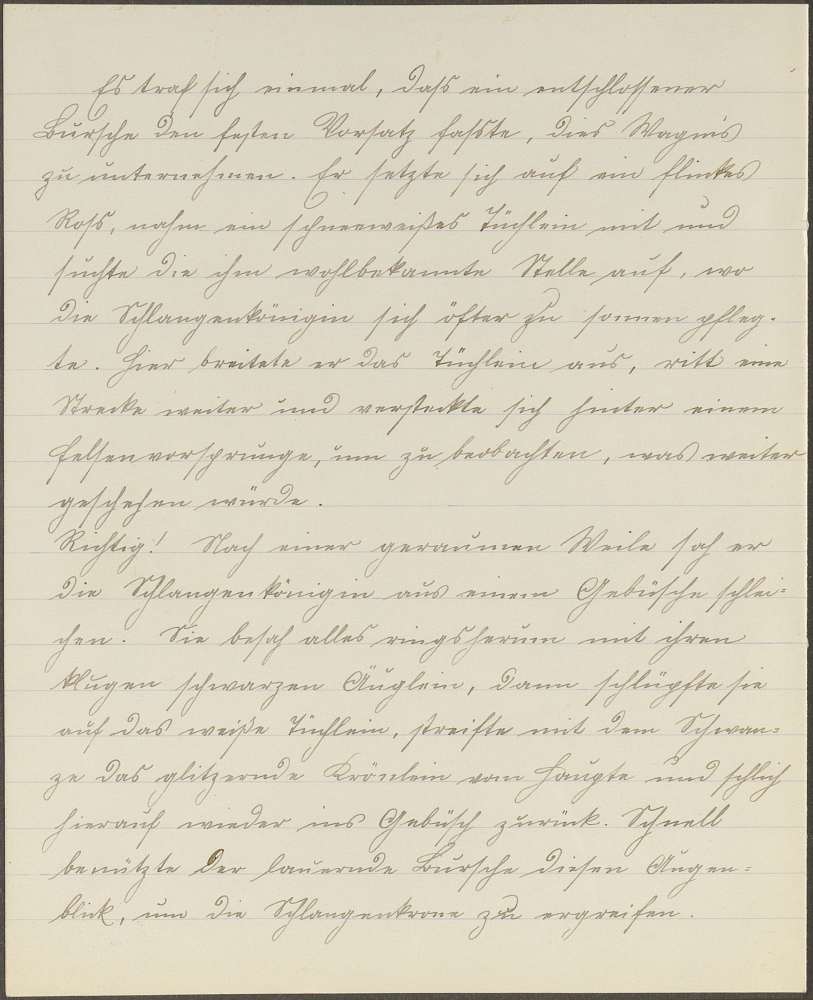 Es traf sich einmal, daß ein entschlossener
Bursche den festen Vorsatz faßte, dies Wagnis
zu unternehmen. Er setzte sich auf ein flinkes
Roß, nahm ein schneeweißes Tüchlein mit und
suchte die ihm wohlbekannte Stelle auf, wo
die Schlangenkönigin sich öfter zu sonnen pfleg-
te. Hier breitete er das Tüchlein aus, ritt eine
Strecke weiter und versteckte sich hinter einem
Felsenvorsprunge, um zu beobachten, was weiter
geschehen würde.
Richtig! Nach einer geraumen Weile sah er
die Schlangenkönigin aus einem Gebüsche schlei=
chen. Sie besah alles ringsherum mit ihren
klugen schwarzen Äuglein, dann schlüpfte sie
auf das weiße Tüchlein, streifte mit dem Schwan=
ze das glitzernde Krönlein vom Haupte und schlich
hierauf wieder ins Gebüsch zurück. Schnell
benützte der lauernde Bursche diesen Augen=
blick, um die Schlangenkrone zu ergreifen.